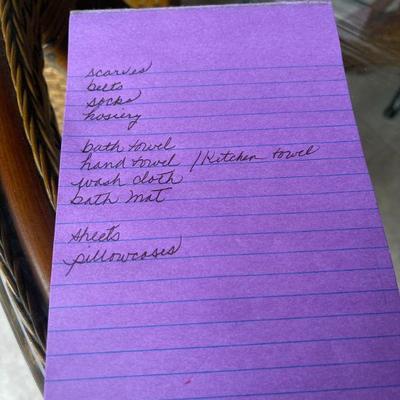 scarves
belts
socks
hosiery
bath towel
hand towel / Kitchen towel
wash cloth
bath mat
sheets
pillowcases